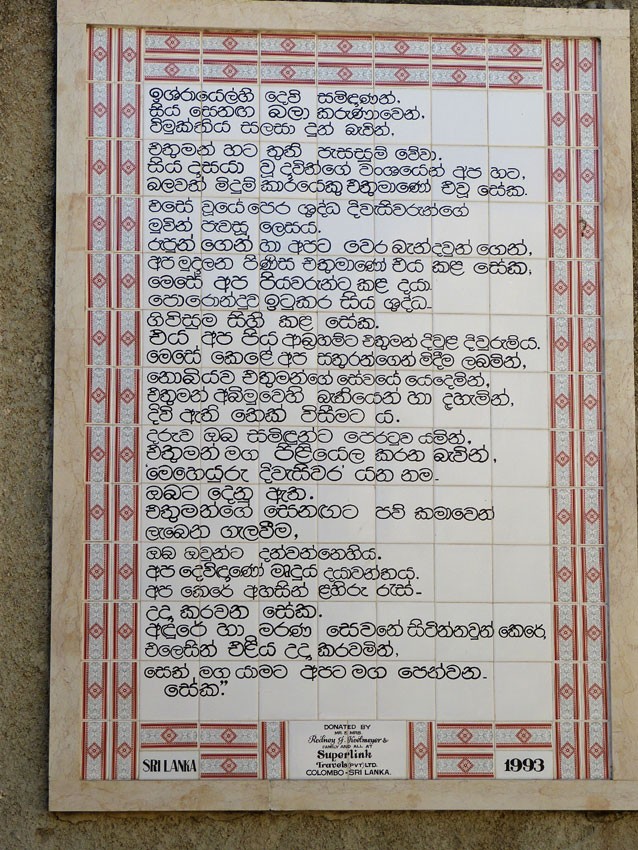 ඉශ්රායෙල්හි දෙවි සමිඳාණන්,
සිය සෙනඟ බලා කරුණාවෙන්,
විමුක්තිය සලසා දුන් බැවින්,
එතුමන් හට තුති පැසසුම් වේවා.
සිය දාසයා වූ දාවිත්ගේ වංශයෙන් අප හට,
බලවත් මිදුම්කාරයෙකු එතුමාණෝ එවූ සේක.
එසේ වූයේ පෙර ශුද්ධ දිවැසිවරුන්ගේ
මුවින් පැවසූ ලෙසය.
රුපුන් ගෙන් හා අපට වෛර බැන්දවුන් ගෙන්,
අප මුදලන පිණිස එතුමාණෝ එය කළ සේක,
මෙසේ අප පියවරුන්ට කළ දයා
පොරොන්දුව ඉටුකර සිය ශුද්ධ
ගිවිසුම සිහි කළ සේක.
එය අප පිය ආබ්‍රහම්ට එතුමන් දිවුළ දිවුරුමය.
මෙසේ කෙළේ අප සතුරන්ගෙන් මිදීම ලබමින්,
නොබියව එතුමන්ගේ සේවයේ යෙදෙමින්,
එතුමන් අබිමුවෙහි බැතියෙන් හා දහැමින්,
දිවි ඇති තෙක් විසීමට ය.
දරුව ඔබ සමිඳුන්ට පෙරටුව යමින්,
එතුමන් මග පිළියෙල කරන බැවින්,
'මෙහෙයුරු දිවැසිවර' යන නම
ඔබට දෙනු ඇත.
එතුමන්ගේ සෙනඟට පව් කමාවෙන්
ලැබෙන ගැලවීම,
ඔබ ඔවුන්ට දන්වන්නෙහිය.
අප දෙවිඳාණෝ මෘදුය දයාවන්තය.
අප කෙරේ අහසින් ළහිරු රැස්-
උදා කරවන සේක.
අඳුරේ හා මරණ සෙවනේ සිටින්නවුන් කෙරේ,
එලෙසින් එළිය උදා කරවමින්,
සෙත් මග යාමට අපට මග පෙන්වන-
සේක."
DONATED BY
MR & MRS
Rodney J. Kortmeyer &
FAMILY AND ALL AT
Superlink
Travels (PVT) LTD.
COLOMBO - SRI LANKA.
SRI LANKA
1993